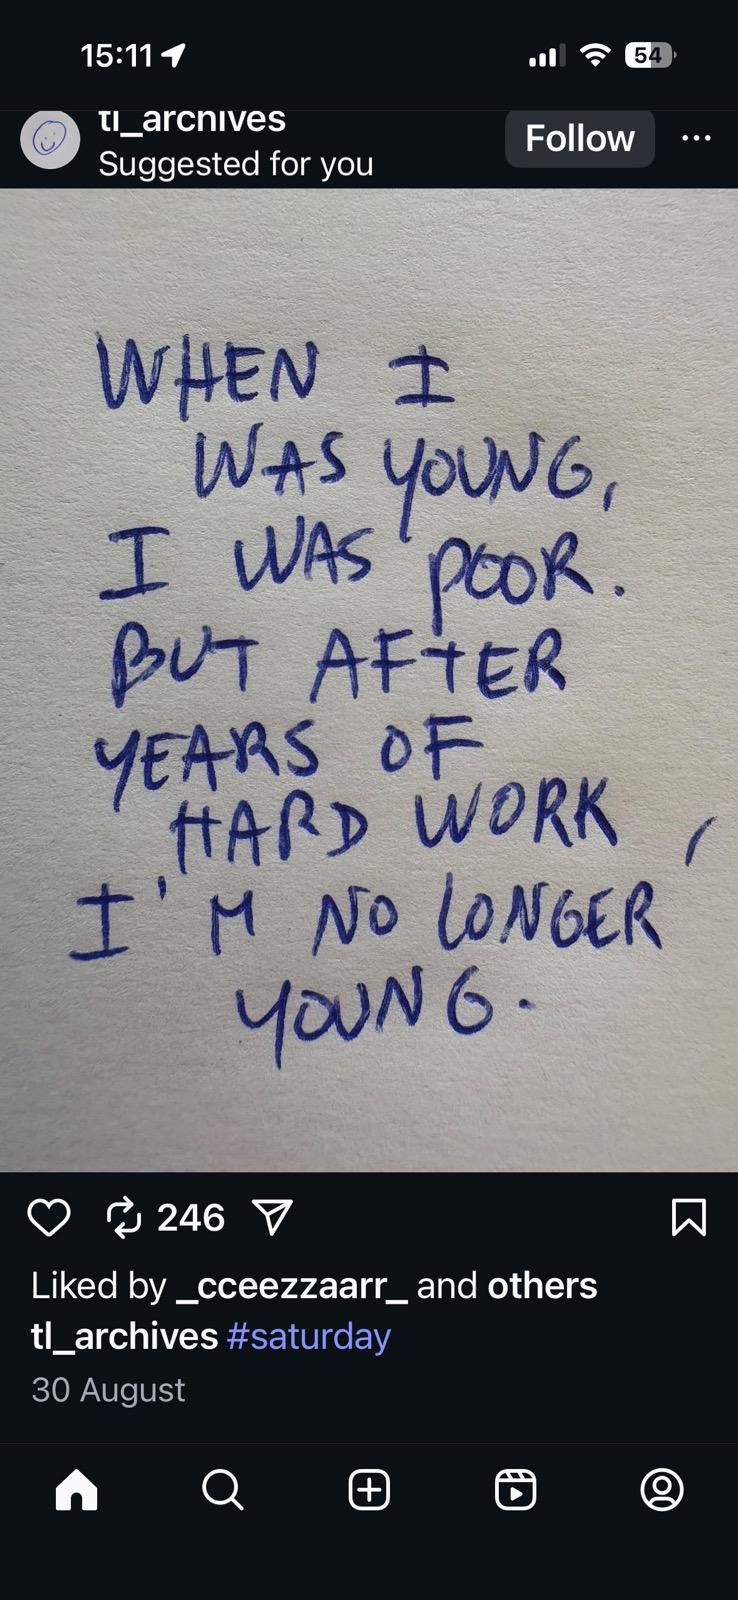 15:11
54
tl_archives
Suggested for you
Follow
WHEN I
WAS YOUNG,
I WAS POOR.
BUT AFTER
YEARS OF
HARD WORK,
I'M NO LONGER
YOUNG.
246
Liked by _cceezzaarr_ and others
tl_archives #saturday
30 August